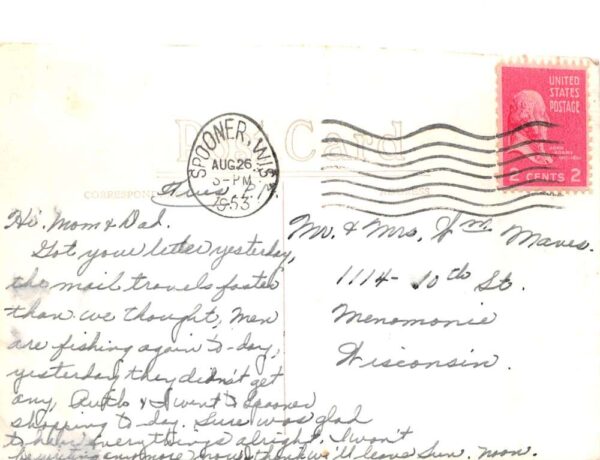 UNITED
STATES
POSTAGE
JOHN
ADAMS
2 CENTS 2
Post Card
SPOONER, WIS.
AUG 26
3-PM
1953
CORRESPONDENCE
ADDRESS
Hi. Mom & Dad.
Got your letter yesterday,
the mail travels faster
than we thought, Men
are fishing again to-day,
yesterday they didn't get
any, Ruth & I went to Spooner
shopping to-day. Sure was glad
to hear everything's alright. I won't
be writing anymore now think we'll leave Sun. noon.
Mr. & Mrs. Wm. Maves.
1114- 10th St.
Menomonie
Wisconsin.